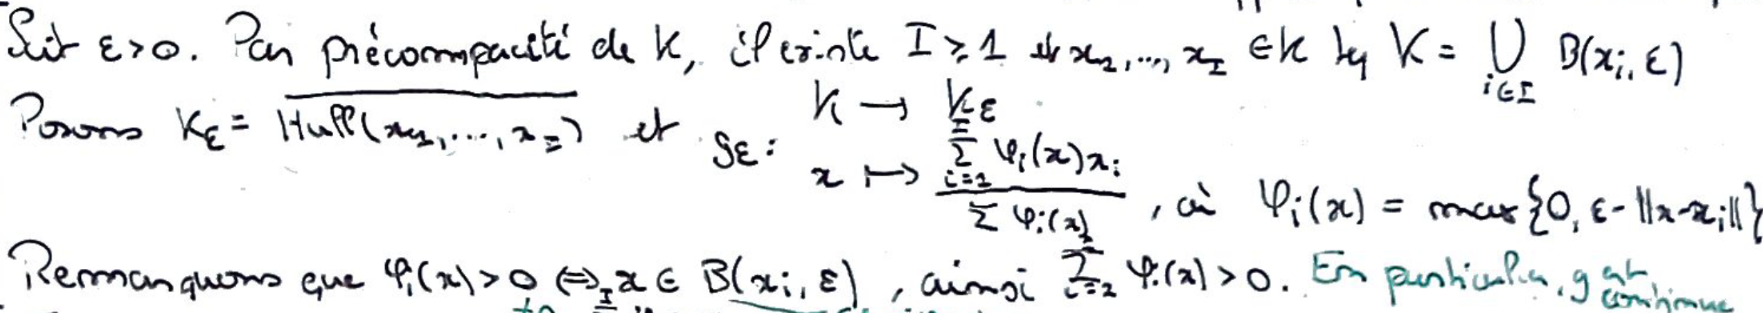 Soit ε>0. Par précompacité de K, il existe I ≥ 1 et x₁,..., x_I ∈ K tq K = ⋃_{i∈I} B(xᵢ, ε)
Posons K_ε = \overline{Hull(x₁,..., x_I)} et g_ε : K → K_ε
x ↦ \frac{\sum_{i=1}^{I} φᵢ(x)xᵢ}{\sum φᵢ(x)}, où φᵢ(x) = max{0, ε-||x-xᵢ||}
Remarquons que φᵢ(x)>0 ⇔ x ∈ B(xᵢ, ε), ainsi \sum_{i=1}^{I} φᵢ(x)>0. En particulier, g est continue